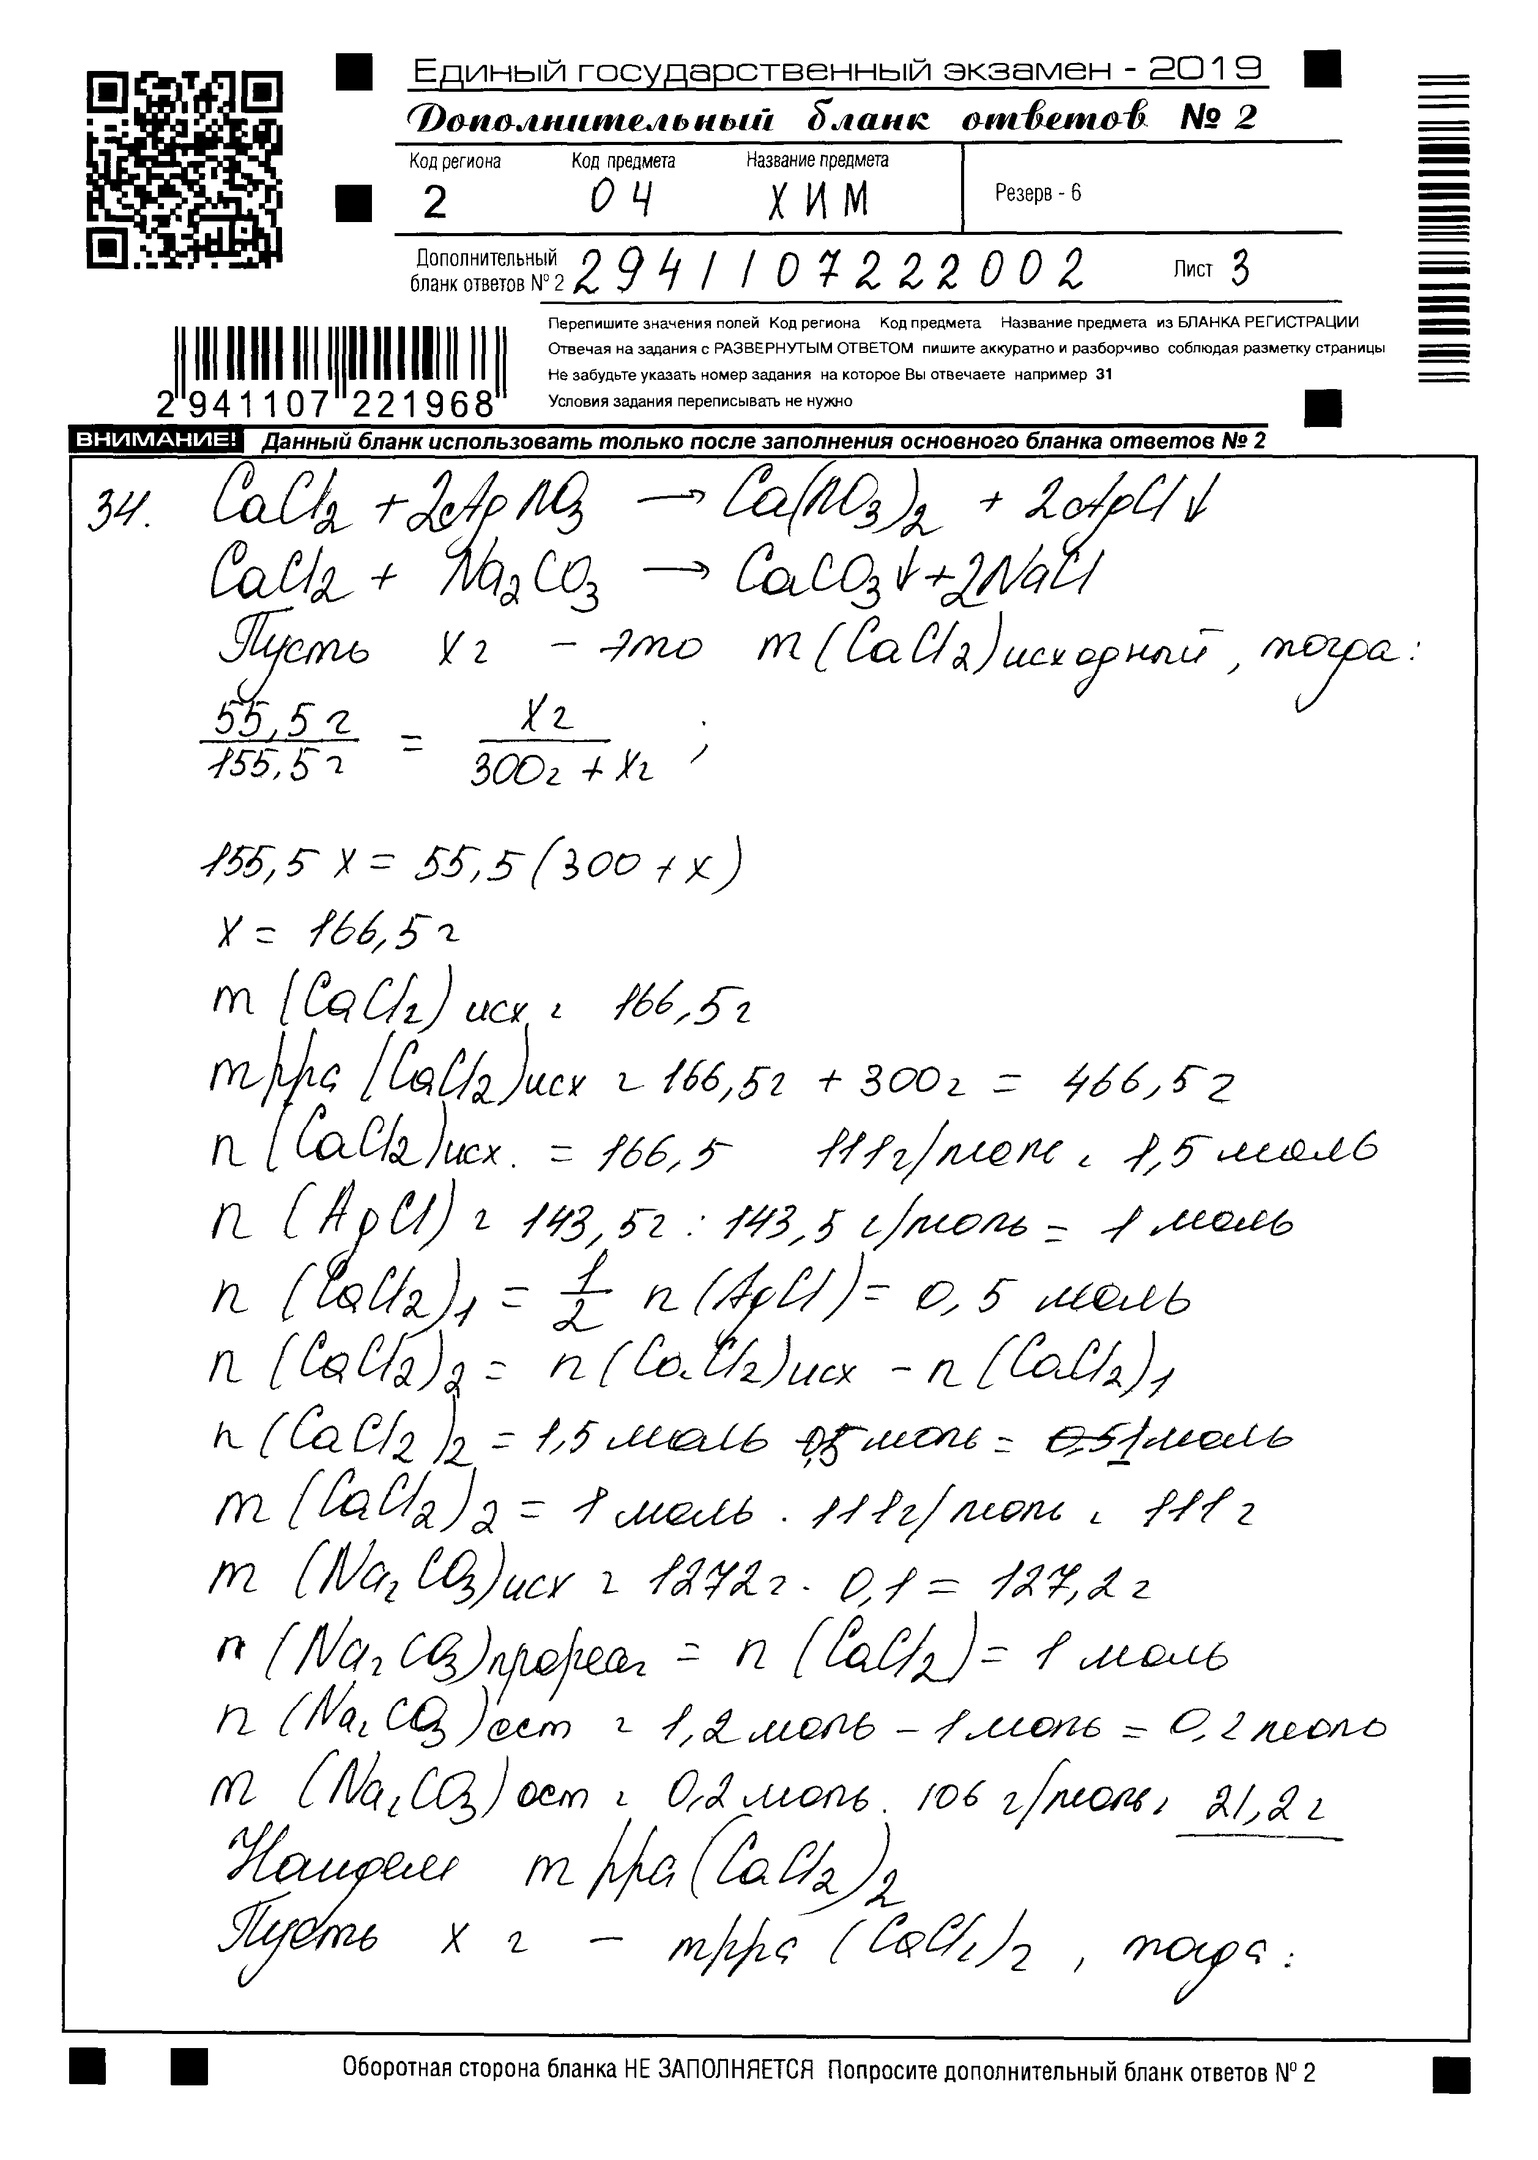 Единый государственный экзамен - 2019
Дополнительный бланк ответов № 2
Код региона Код предмета Название предмета
2 04 ХИМ Резерв - 6
Дополнительный бланк ответов № 2 2941107222002 Лист 3
Перепишите значения полей Код региона Код предмета Название предмета из БЛАНКА РЕГИСТРАЦИИ
Отвечая на задания с РАЗВЕРНУТЫМ ОТВЕТОМ пишите аккуратно и разборчиво соблюдая разметку страницы
Не забудьте указать номер задания на которое Вы отвечаете например 31
Условия задания переписывать не нужно
2 941107 221968
ВНИМАНИЕ! Данный бланк использовать только после заполнения основного бланка ответов № 2
34. CaCl2 + 2AgNO3 → Ca(NO3)2 + 2AgCl↓
CaCl2 + Na2CO3 → CaCO3↓ + 2NaCl
Пусть x г – это m (CaCl2) исходный, тогда:
55,5 г / 155,5 г = x г / 300 г + x г ;
155,5 x = 55,5 (300 + x)
x = 166,5 г
m (CaCl2) исх. = 166,5 г
m р-ра (CaCl2) исх = 166,5 г + 300 г = 466,5 г
n (CaCl2) исх. = 166,5 111 г/моль = 1,5 моль
n (AgCl) = 143,5 г : 143,5 г/моль = 1 моль
n (CaCl2)1 = 1/2 n (AgCl) = 0,5 моль
n (CaCl2)2 = n (CaCl2) исх – n (CaCl2)1
n (CaCl2)2 = 1,5 моль 0,5 моль = 0,5 1 моль
m (CaCl2)2 = 1 моль · 111 г/моль = 111 г
m (Na2CO3) исх = 1272 г · 0,1 = 127,2 г
n (Na2CO3) прореаг = n (CaCl2) = 1 моль
n (Na2CO3) ост = 1,2 моль – 1 моль = 0,2 моль
m (Na2CO3) ост = 0,2 моль · 106 г/моль = 21,2 г
Найдем m р-ра (CaCl2)2
Пусть x г – m р-ра (CaCl2)2, тогда:
Оборотная сторона бланка НЕ ЗАПОЛНЯЕТСЯ Попросите дополнительный бланк ответов № 2